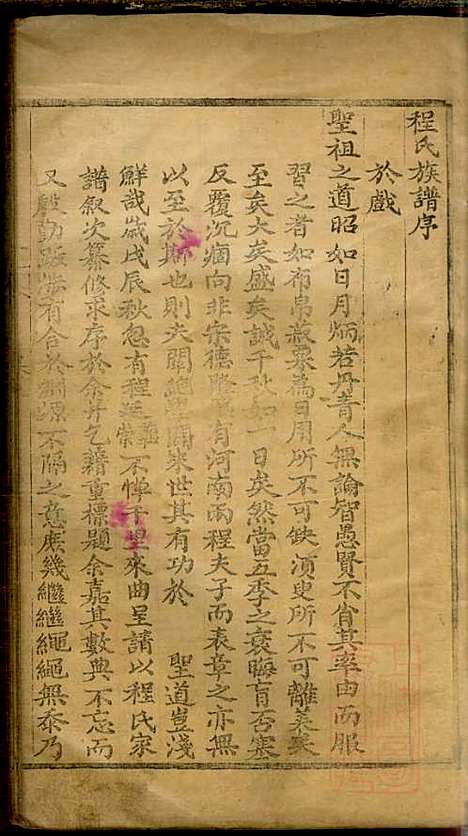 程氏族譜序
於戲
聖祖之道昭如日月炳若丹青人無論智愚賢不省其率由而服
習之者如布帛菽粟為日用所不可缺湏臾所不可離美矣
至矣大矣盛矣誠千秋如一日矣然當五季之衰晦盲否塞
反覆沉痼向非宋德隆盛有河南兩程夫子而表章之亦無
以至於斯也則夫闢絶學開來世其有功於 聖道豈淺
鮮哉歲戊辰秋忽有程 不憚千里來曲呈請以程氏家
譜叙次纂修求序於余并乞籍重標題余嘉其數典不忘而
又殷勤跋涉有合於淵源不隔之意庶幾繼繼繩繩無忝乃